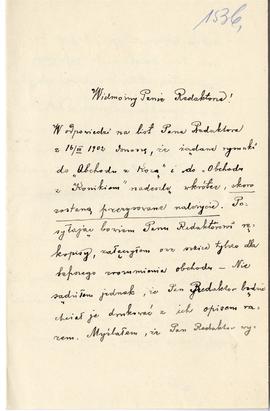 153b,
Wielmożny Panie Redaktorze!
W odpowiedzi na list Pana Redaktora
z 16/III 1902 donoszę, że żądane rysunki
do „Obchodu z Kozą" i do „Obchodu
z Konikiem nadeślę wkrótce, skoro
zostaną przerysowane należycie. Po-
syłając bowiem Panu Redaktorowi rę-
kopisy, załączyłem owe szkice tylko dla
łatwiejszego zrozumienia obchodu – Nie
sądziłem jednak, że Pan Redaktor będzie
chciał je drukować z ich opisem ra-
zem. Myślałem, że Pan Redaktor wy-